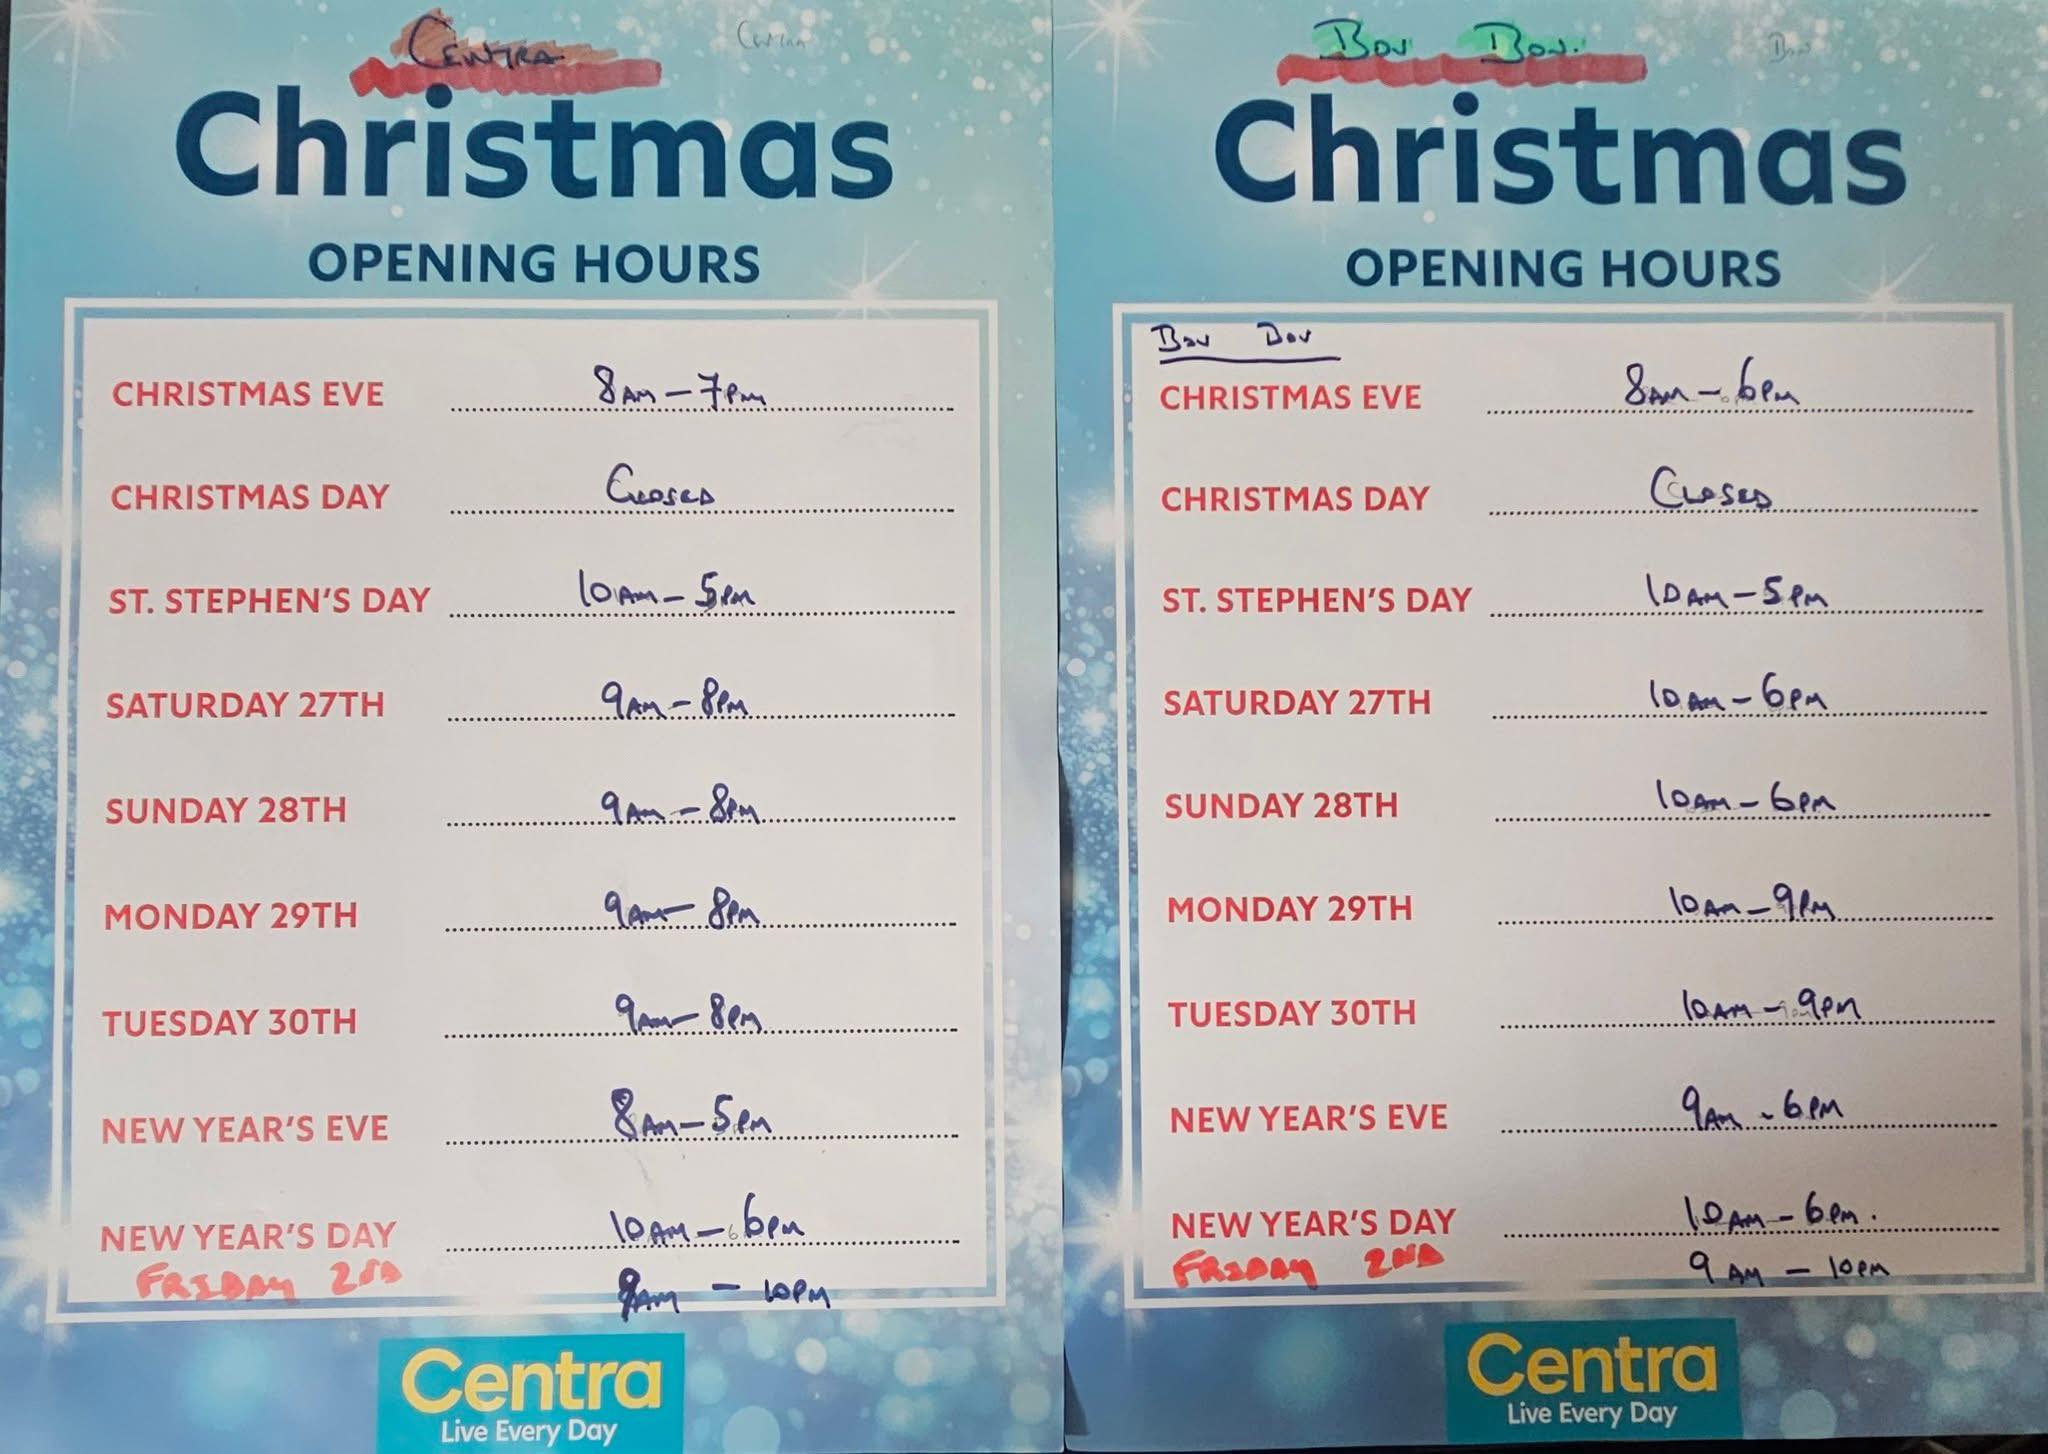 CENTRA
Centra
Christmas
OPENING HOURS
CHRISTMAS EVE 8AM - 7PM
CHRISTMAS DAY CLOSED
ST. STEPHEN'S DAY 10AM - 5PM
SATURDAY 27TH 9AM - 8PM
SUNDAY 28TH 9AM - 8PM
MONDAY 29TH 9AM - 8PM
TUESDAY 30TH 9AM - 8PM
NEW YEAR'S EVE 8AM - 5PM
NEW YEAR'S DAY 10AM - 6PM
FRIDAY 2ND 9AM - 10PM
Centra
Live Every Day
BON BON.
Bon
Christmas
OPENING HOURS
BON BON
CHRISTMAS EVE 8AM - 6PM
CHRISTMAS DAY CLOSED
ST. STEPHEN'S DAY 10AM - 5PM
SATURDAY 27TH 10AM - 6PM
SUNDAY 28TH 10AM - 6PM
MONDAY 29TH 10AM - 9PM
TUESDAY 30TH 10AM - 9PM
NEW YEAR'S EVE 9AM - 6PM
NEW YEAR'S DAY 10AM - 6PM.
FRIDAY 2ND 9AM - 10PM
Centra
Live Every Day